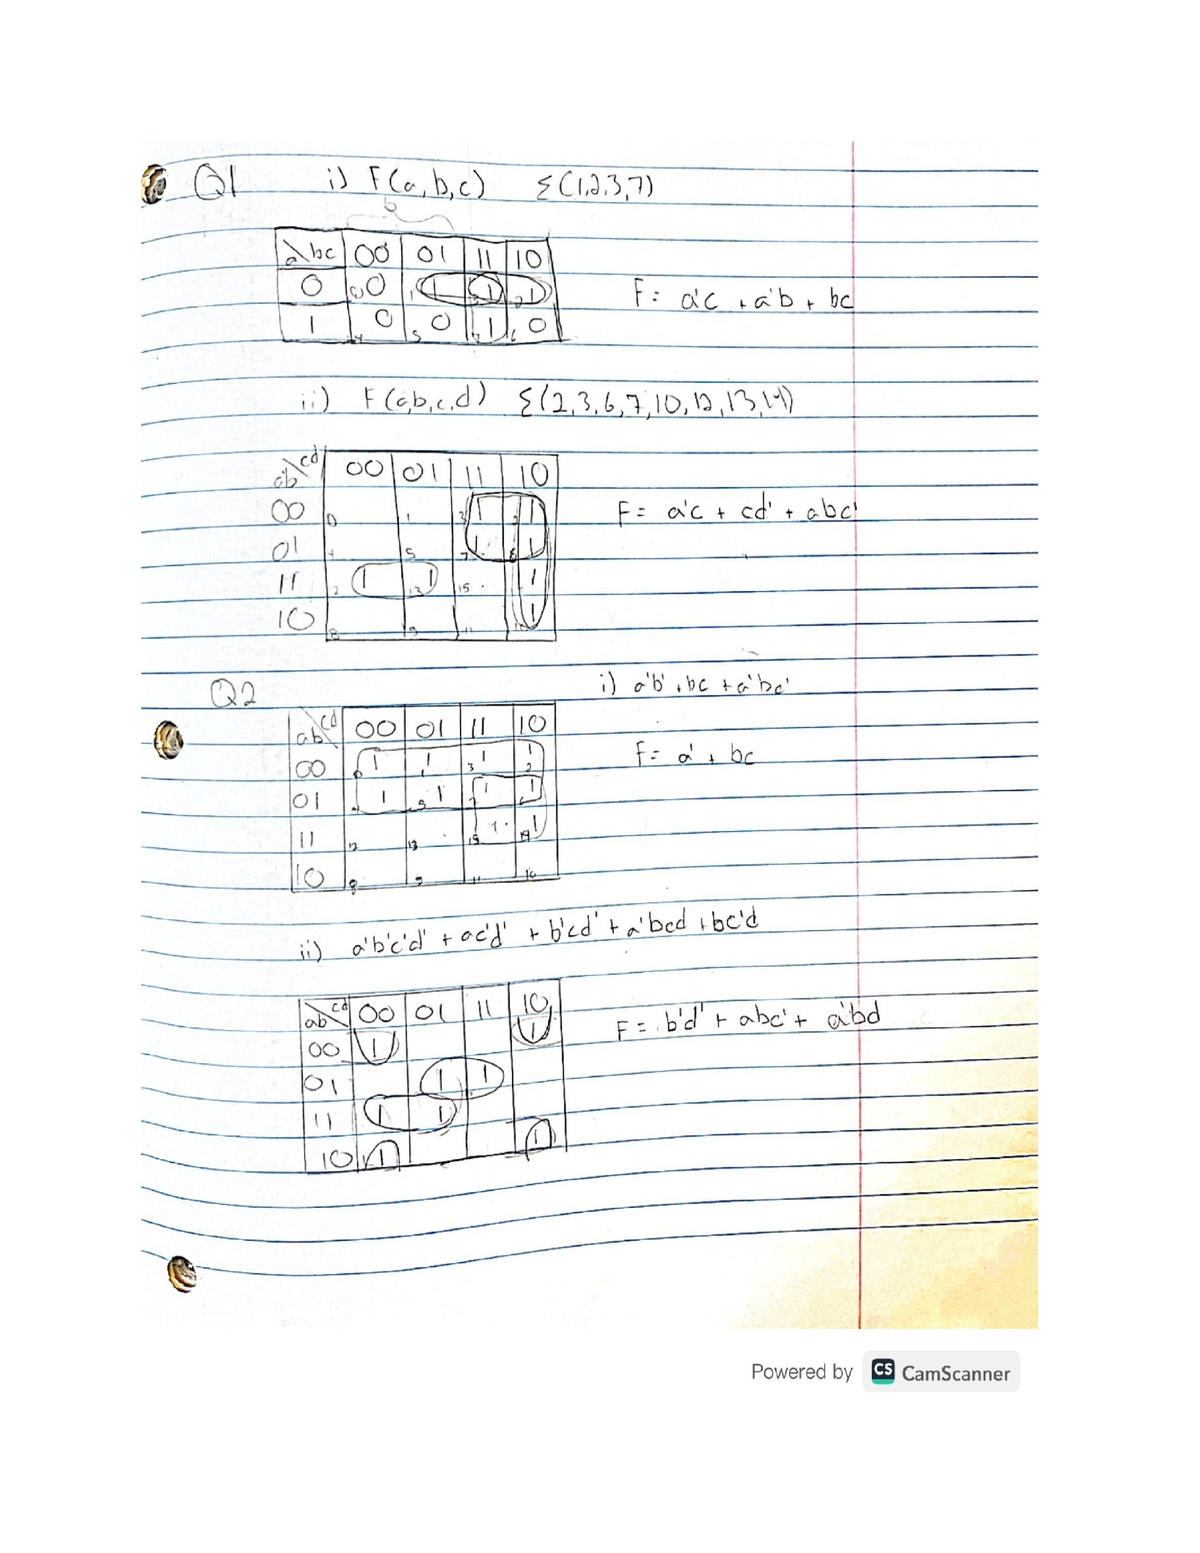 Q1 i) F(a,b,c) Σ(1,2,3,7)
b
a bc 00 01 11 10
0 0 0 1 1 3 1 2 1
1 4 0 5 0 7 1 6 0
F= a'c + a'b + bc
ii) F(a,b,c,d) Σ(2,3,6,7,10,12,13,14)
ab cd 00 01 11 10
00 0 1 3 1 2 1
01 4 5 7 1 6 1
11 12 1 13 1 15 1
10 8 9 11 10 1
F= a'c + cd' + abc'
Q2 i) a'b' + bc + a'bc'
ab cd 00 01 11 10
00 0 1 1 1 3 1 2 1
01 4 1 5 1 7 1 6 1
11 12 13 15 1 14 1
10 8 9 11 10
F= a' + bc
ii) a'b'c'd' + ac'd' + b'cd' + a'bcd + bc'd
ab cd 00 01 11 10
00 1 1
01 1 1
11 1 1
10 1 1
F= b'd' + abc' + a'bd
Powered by CS CamScanner